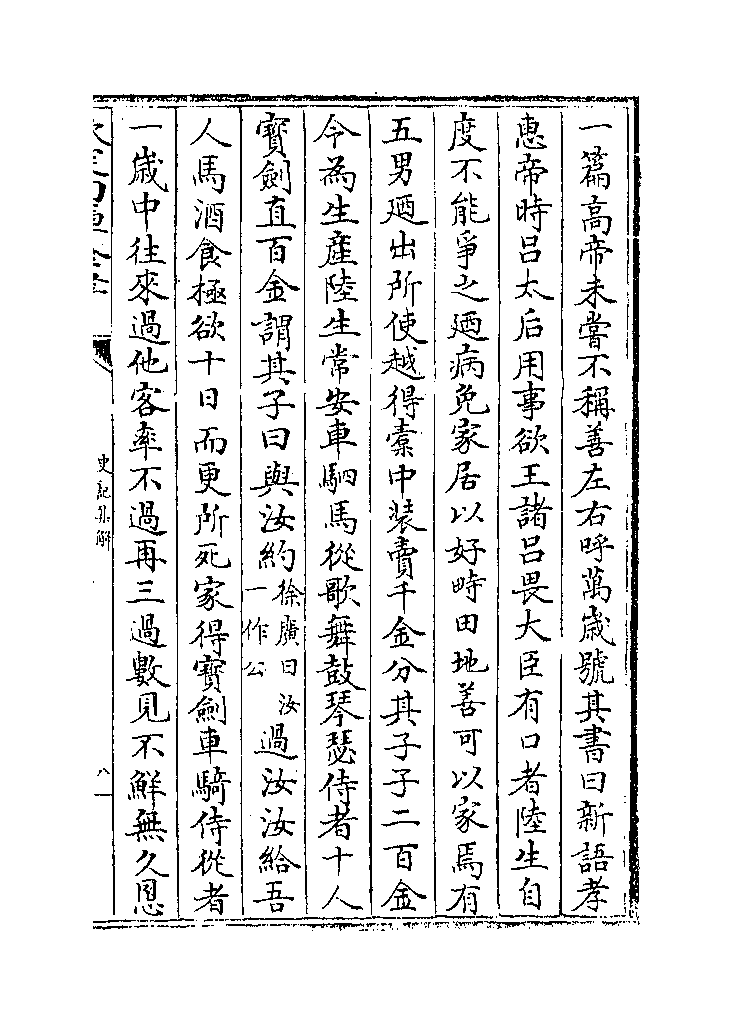 一篇高帝未嘗不稱善左右呼萬嵗號其書曰新語孝
惠帝時吕太后用事欲王諸吕畏大臣有口者陸生自
度不能爭之廼病免家居以好畤田地善可以家焉有
五男廼出所使越得槖中装賣千金分其子子二百金
令為生産陸生常安車駟馬從歌舞鼓琴瑟侍者十人
寳劍直百金謂其子曰與汝約徐廣曰汝一作公過汝汝給吾
人馬酒食極欲十日而更所死家得寳劍車騎侍從者
一嵗中往來過他客率不過再三過數見不鮮無久慁
史記集解
八